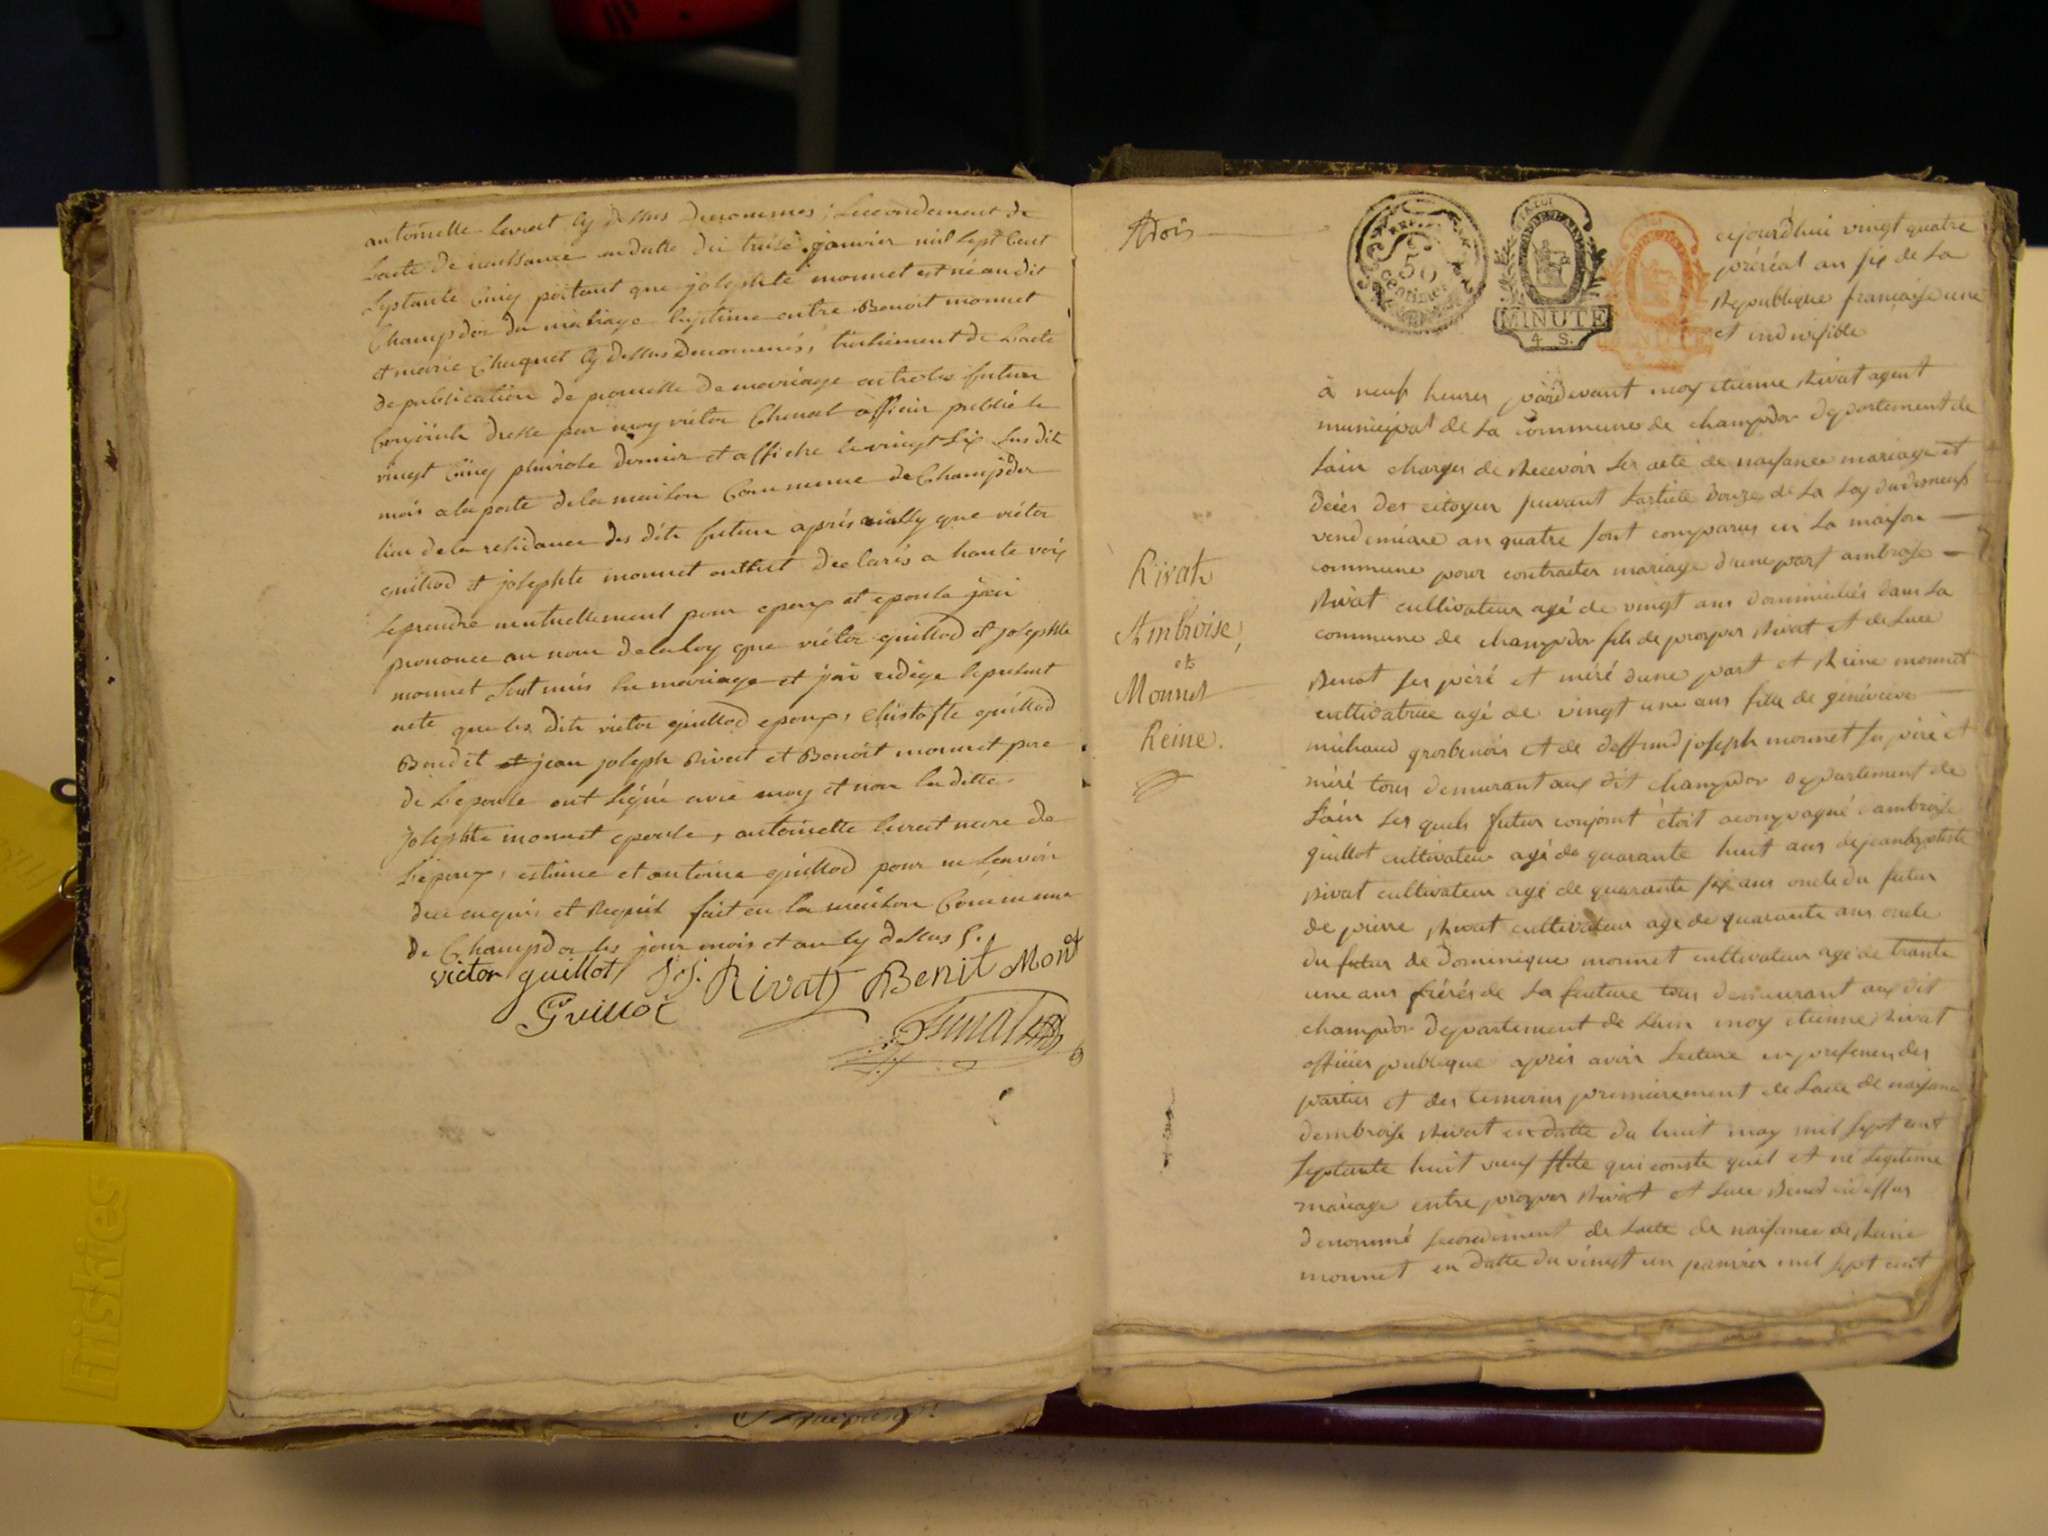 antoinette levrat cy dessus denommes; secondement de
Lacte de naissance en datte du treize janvier mil sept cent
septante cinq portant que josephte monnet est né audit
Champdor du mariage legitime entre Benoit monnet
et marie Chuquet cy dessus denommés, troisiement de Lacte
de publication de promesse de mariage entre les futur
Conjoints dressé par moy victor Chenal officier publié le
vingt Cinq pluviose dernier et affiché le vingt six susdit
mois a la porte de la maison Commune de Champdor
lieu de la residance des dits futur après que victor
guillod et josephte monnet ont declarés a haute voix
se prendre mutuellement pour epoux et epouse j'ai
prononce au nom de la loy que victor guillod et josephte
monnet sont unis en mariage et j'ai redige le present
acte que les dits victor guillod epoux, Christofle guillod
Bondet et jean joseph Rivat et Benoit monnet pere
de L'epouse ont signé avec moy et non la ditte
josephte monnet epouse, antoinette levrat mere de
L'epoux, estienne et antoine guillod pour ne scavoir
de ce enquis et Requis fait en la maison Commune
de Champdor les jour mois et an cy dessus
victor guillot j.j. Rivat Benit Mont
Guillot
Trois
5
Centimes
LA LOI
MINUTE
4 S.
MINUTE
aujourdhui vingt quatre
préréal an six de La
Republique française une
et indivisible
à neuf heures pardevant moy etienne Rivat agent
municipal de La Commune de champdor departement de
Lain charges de Recevoir les acte de naisance mariage et
deces des citoyen suivant Larticle douze de La Loy du dixneuf
vendemiaire an quatre sont comparus en La maison
commune pour contracter mariage d'une part ambroise
Rivat cultivateur agé de vingt ans domiciliés dans La
commune de champdor fils de prosper Rivat et de Luce
Benot ses péré et méré dune part et Reine monnet
cultivatrice agé de vingt une ans fille de généviéve
michaud grosbenois et de deffund joseph monnet ses péré et
méré tous demurant aux dit champdor departement de
Lain Les quels futur conjoint étoit acompagné d'ambroise
guillot cultivateur agé de quarante huit ans de jeanbaptiste
Rivat cultivateur agé de quarante six ans oncle du futur
de pierre Rivat cultivateur age de quarante ans oncle
du futur de Dominique monnet cultivateur agé de trante
une ans fréré de La future tous demeurant aux dit
champdor departement de Lain moy etienne Rivat
officier publique apres avoir Lecture en presence des
parties et des temoins premierement de Lacte de naisance
dembroise Rivat en datte du huit may mil sept cent
septante huit vieux stile qui conste quil et né Legitime
mariage entre prosper Rivat et Luce Benod cidessus
denommé secondement de Lacte de naisance de Reine
monnet en datte du vingt un janvier mil sept cent
Rivat
Ambroise,
et
Monnet
Reine.
friskies